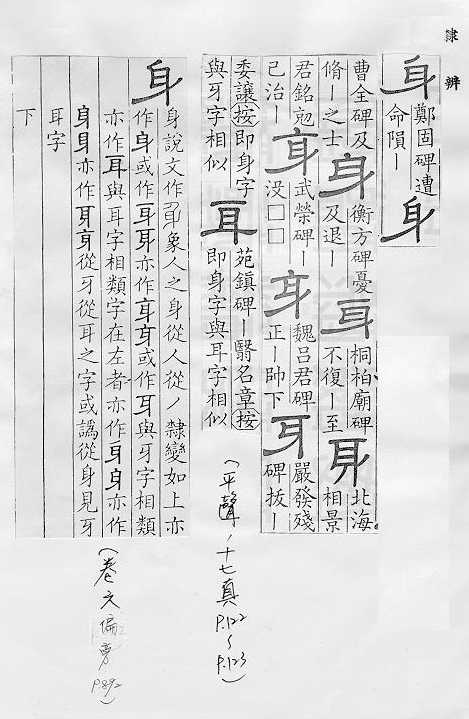 隸辨
身 鄭固碑遭 身
命隕丨
曹全碑及 衡方碑憂 桐柏廟碑 北海
脩丨之士 身 及退丨 耳 不復丨至 身 相景
君銘剋 身 武榮碑丨 魏呂君碑 嚴發殘
己治丨 没□□ 身 正丨帥下 耳 碑拔丨
委讓按即身字 耳 苑鎮碑丨翳名章按
與牙字相似 即身字與耳字相似
(平聲,十七真 P.122~P.123)
身 身說文作象人之身從人從丿隸變如上亦
作身或作耳耳亦作身身或作耳與牙字相類
亦作耳與耳字相類字在左者亦作身身亦作
身身亦作耳身從牙從耳之字或譌從身見牙
耳字
下
(卷六偏旁 P.892)